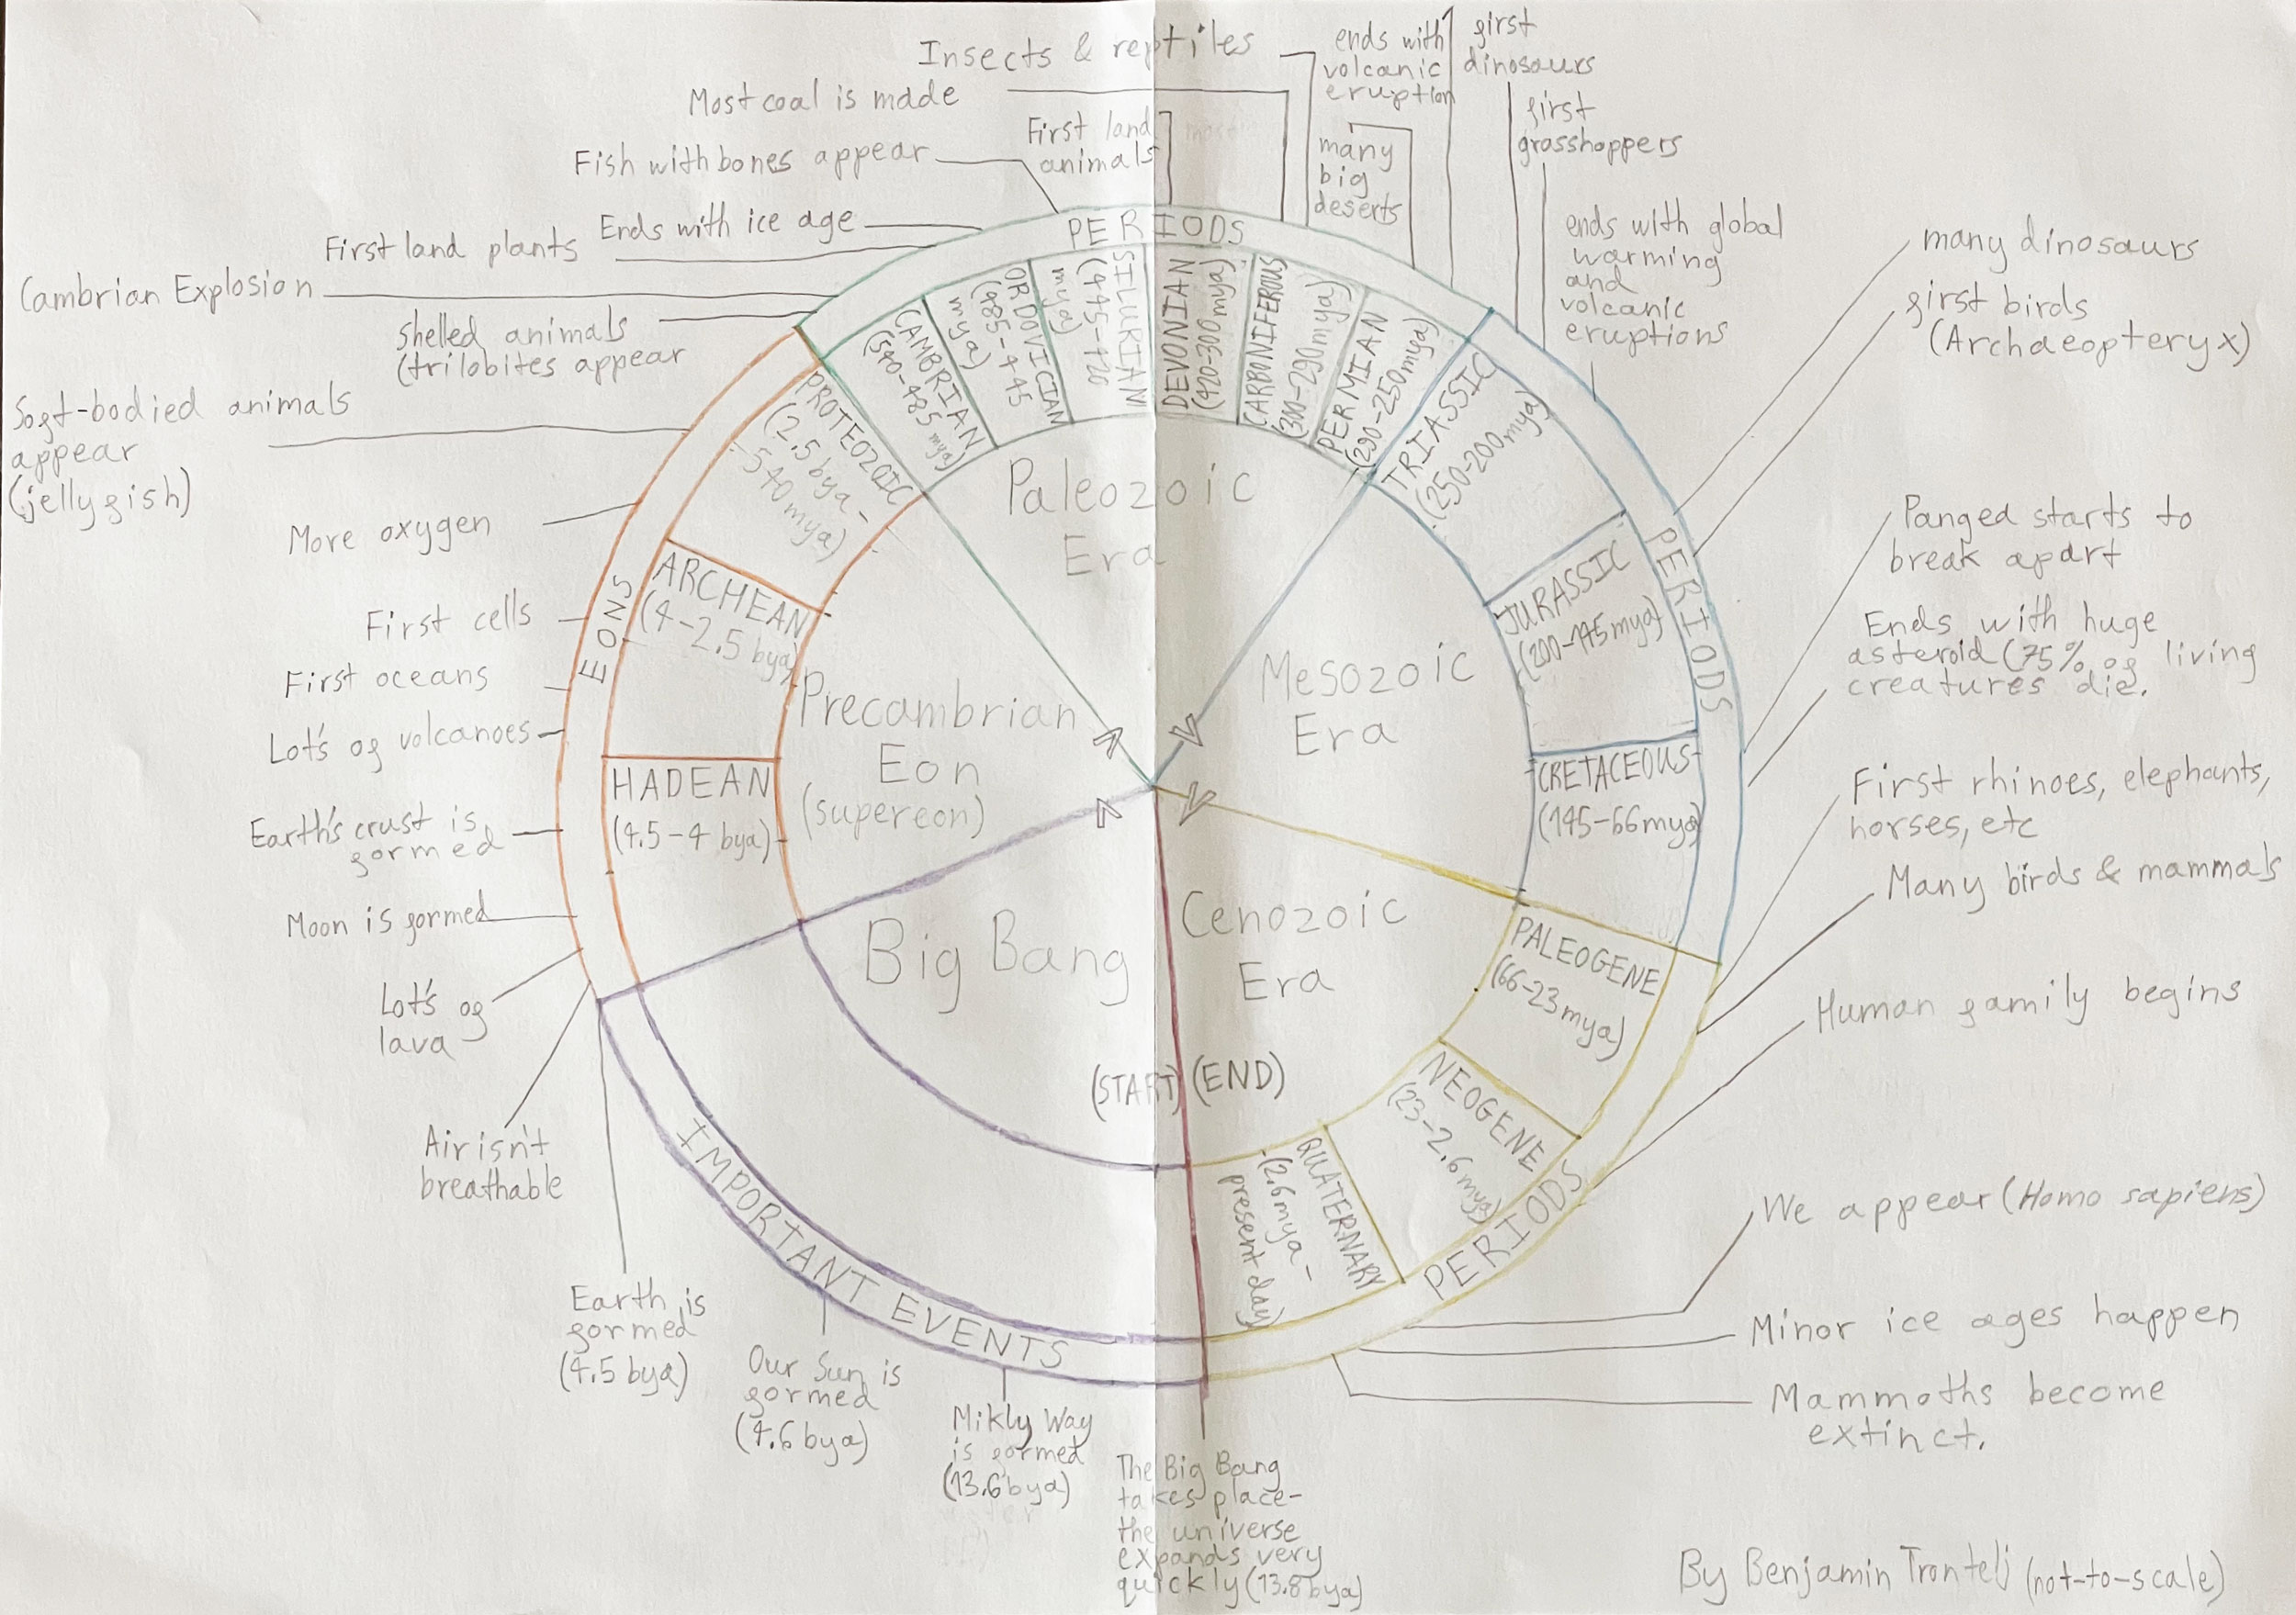 Insects & reptiles
Most coal is made
Fish with bones appear
First land
animals
Ends with ice age
First land plants
Cambrian Explosion
Shelled animals
(trilobites appear
Soft-bodied animals
appear
(jellyfish)
More oxygen
First cells
First oceans
Lot's of volcanoes
Earth's crust is
formed
Moon is formed
Lot's of
lava
Air isn't
breathable
Earth is
formed
(4.5 bya)
Our Sun is
formed
(4.6 bya)
Mikly Way
is formed
(13.6 bya)
The Big Bang
takes place-
the universe
expands very
quickly (13.8 bya)
ends with
volcanic
eruption
many
big
deserts
first
dinosaurs
first
grasshoppers
ends with global
warming
and
volcanic
eruptions
many dinosaurs
first birds
(Archaeopteryx)
Pangea starts to
break apart
Ends with huge
asteroid (75% of living
creatures die.
First rhinoes, elephants,
horses, etc
Many birds & mammals
Human family begins
We appear (Homo sapiens)
Minor ice ages happen
Mammoths become
extinct.
IMPORTANT EVENTS
EONS
PERIODS
PERIODS
PERIODS
Big Bang
(START)
(END)
Precambrian
Eon
(supereon)
HADEAN
(4.5-4 bya)
ARCHEAN
(4-2.5 bya)
PROTEOZOIC
(2.5 bya-
540 mya)
Paleozoic
Era
CAMBRIAN
(540-485 mya)
ORDOVICIAN
(485-445
mya)
SILURIAN
(445-420
mya)
DEVONIAN
(420-300 mya)
CARBONIFEROUS
(300-290 mya)
PERMIAN
(290-250 mya)
Mesozoic
Era
TRIASSIC
(250-200 mya)
JURASSIC
(200-145 mya)
CRETACEOUS
(145-66 mya)
Cenozoic
Era
PALEOGENE
(66-23 mya)
NEOGENE
(23-2.6 mya)
QUATERNARY
(2.6 mya-
present day)
By Benjamin Trontelj (not-to-scale)